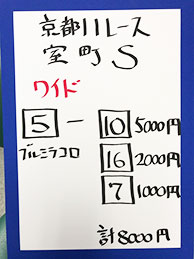 京都11レース
室町S
ワイド
5 － 10 5000円
ブルミラコロ 16 2000円
7 1000円
計8000円